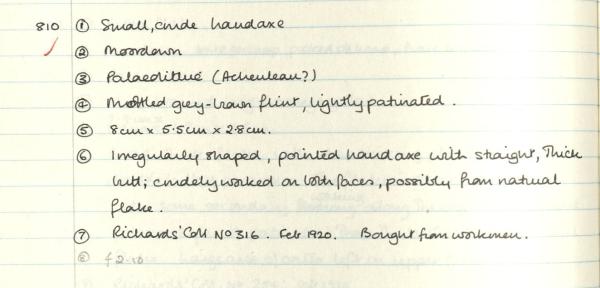 810 ① Small, crude handaxe
② Moordown
③ Palaeolithic (Acheulean?)
④ Mottled grey-brown flint, lightly patinated.
⑤ 8cm x 5.5cm x 2.8cm.
⑥ Irregularly shaped, pointed handaxe with straight, thick
butt; crudely worked on both faces, possibly from natural
flake.
⑦ Richards' Coll No 316. Feb 1920. Bought from workmen.
⑧ £2.10